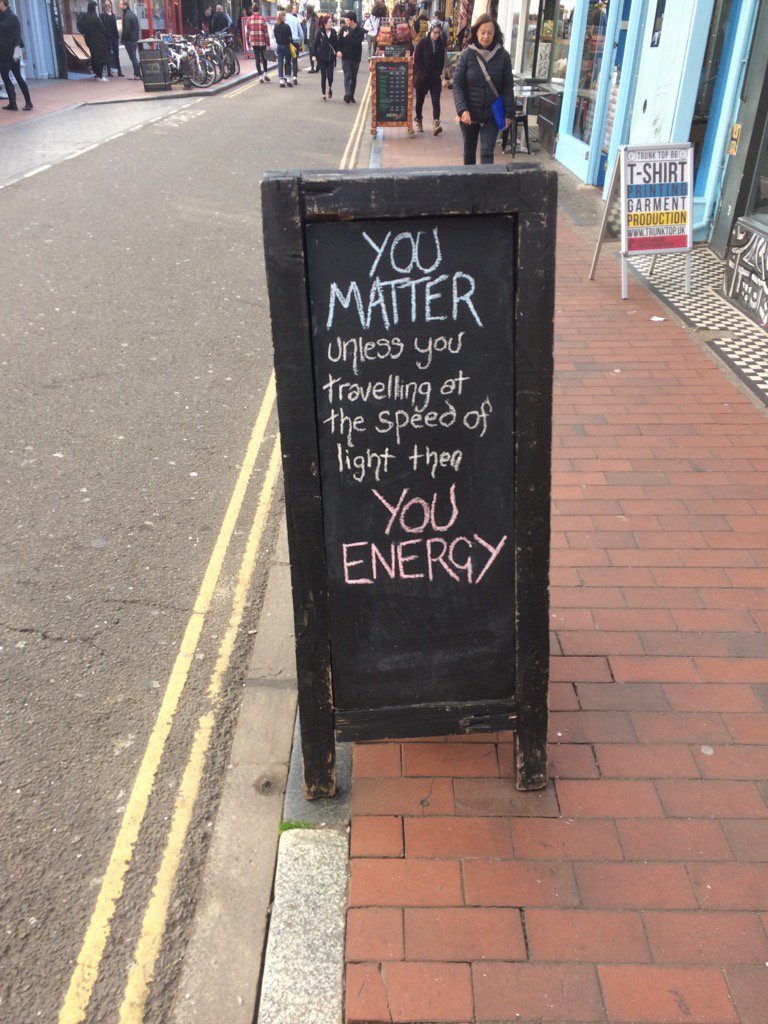 YOU
MATTER
unless you
travelling at
the speed of
light then
YOU
ENERGY
TRUNK TOP 86
T-SHIRT
PRINTING
GARMENT
PRODUCTION
WWW.TRUNKTOP.UK